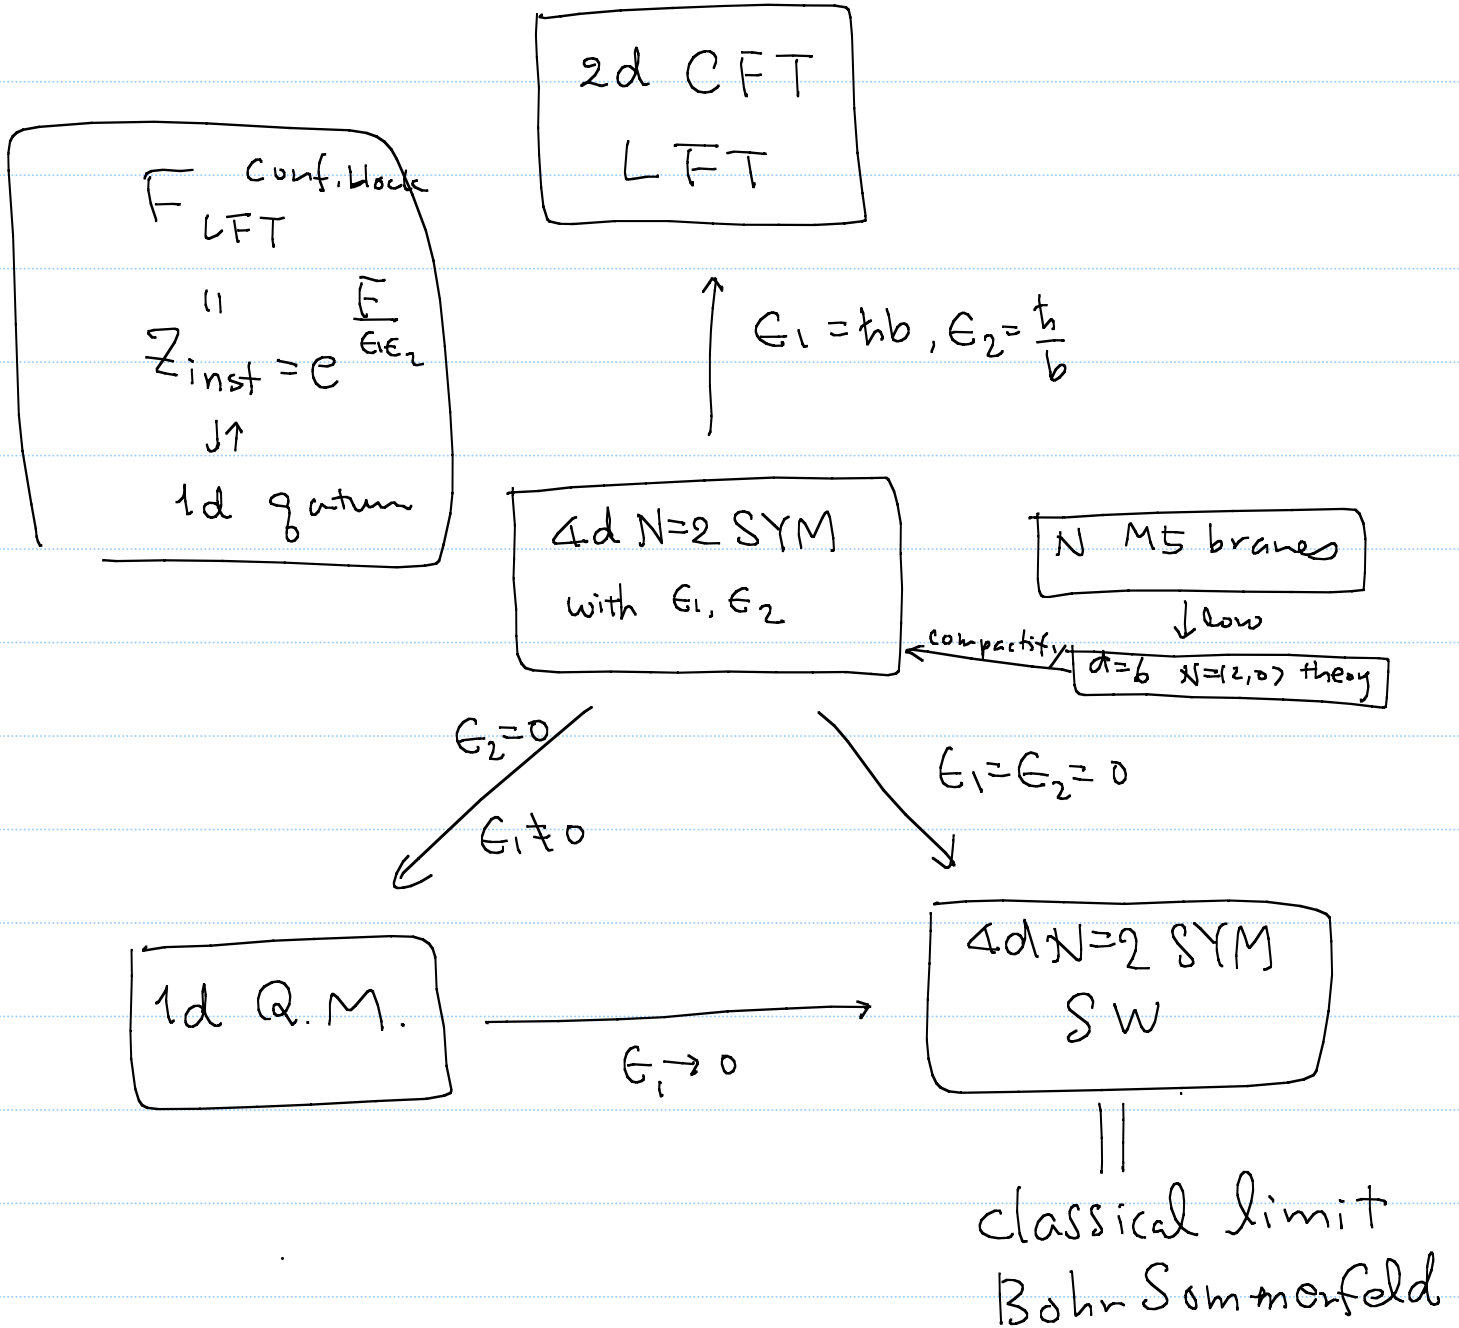 2d CFT
LFT
F conf. block
LFT
=
Z_inst = e^{F/ε₁ε₂}
↓↑
1d qatum
ε₁ = ħb, ε₂ = ħ/b
4d N=2 SYM
with ε₁, ε₂
N M5 branes
↓ low
compactify
d=6 N=(2,0) theory
ε₂=0
ε₁≠0
ε₁=ε₂=0
1d Q.M.
ε₁→0
4d N=2 SYM
SW
||
classical limit
Bohr Sommerfeld